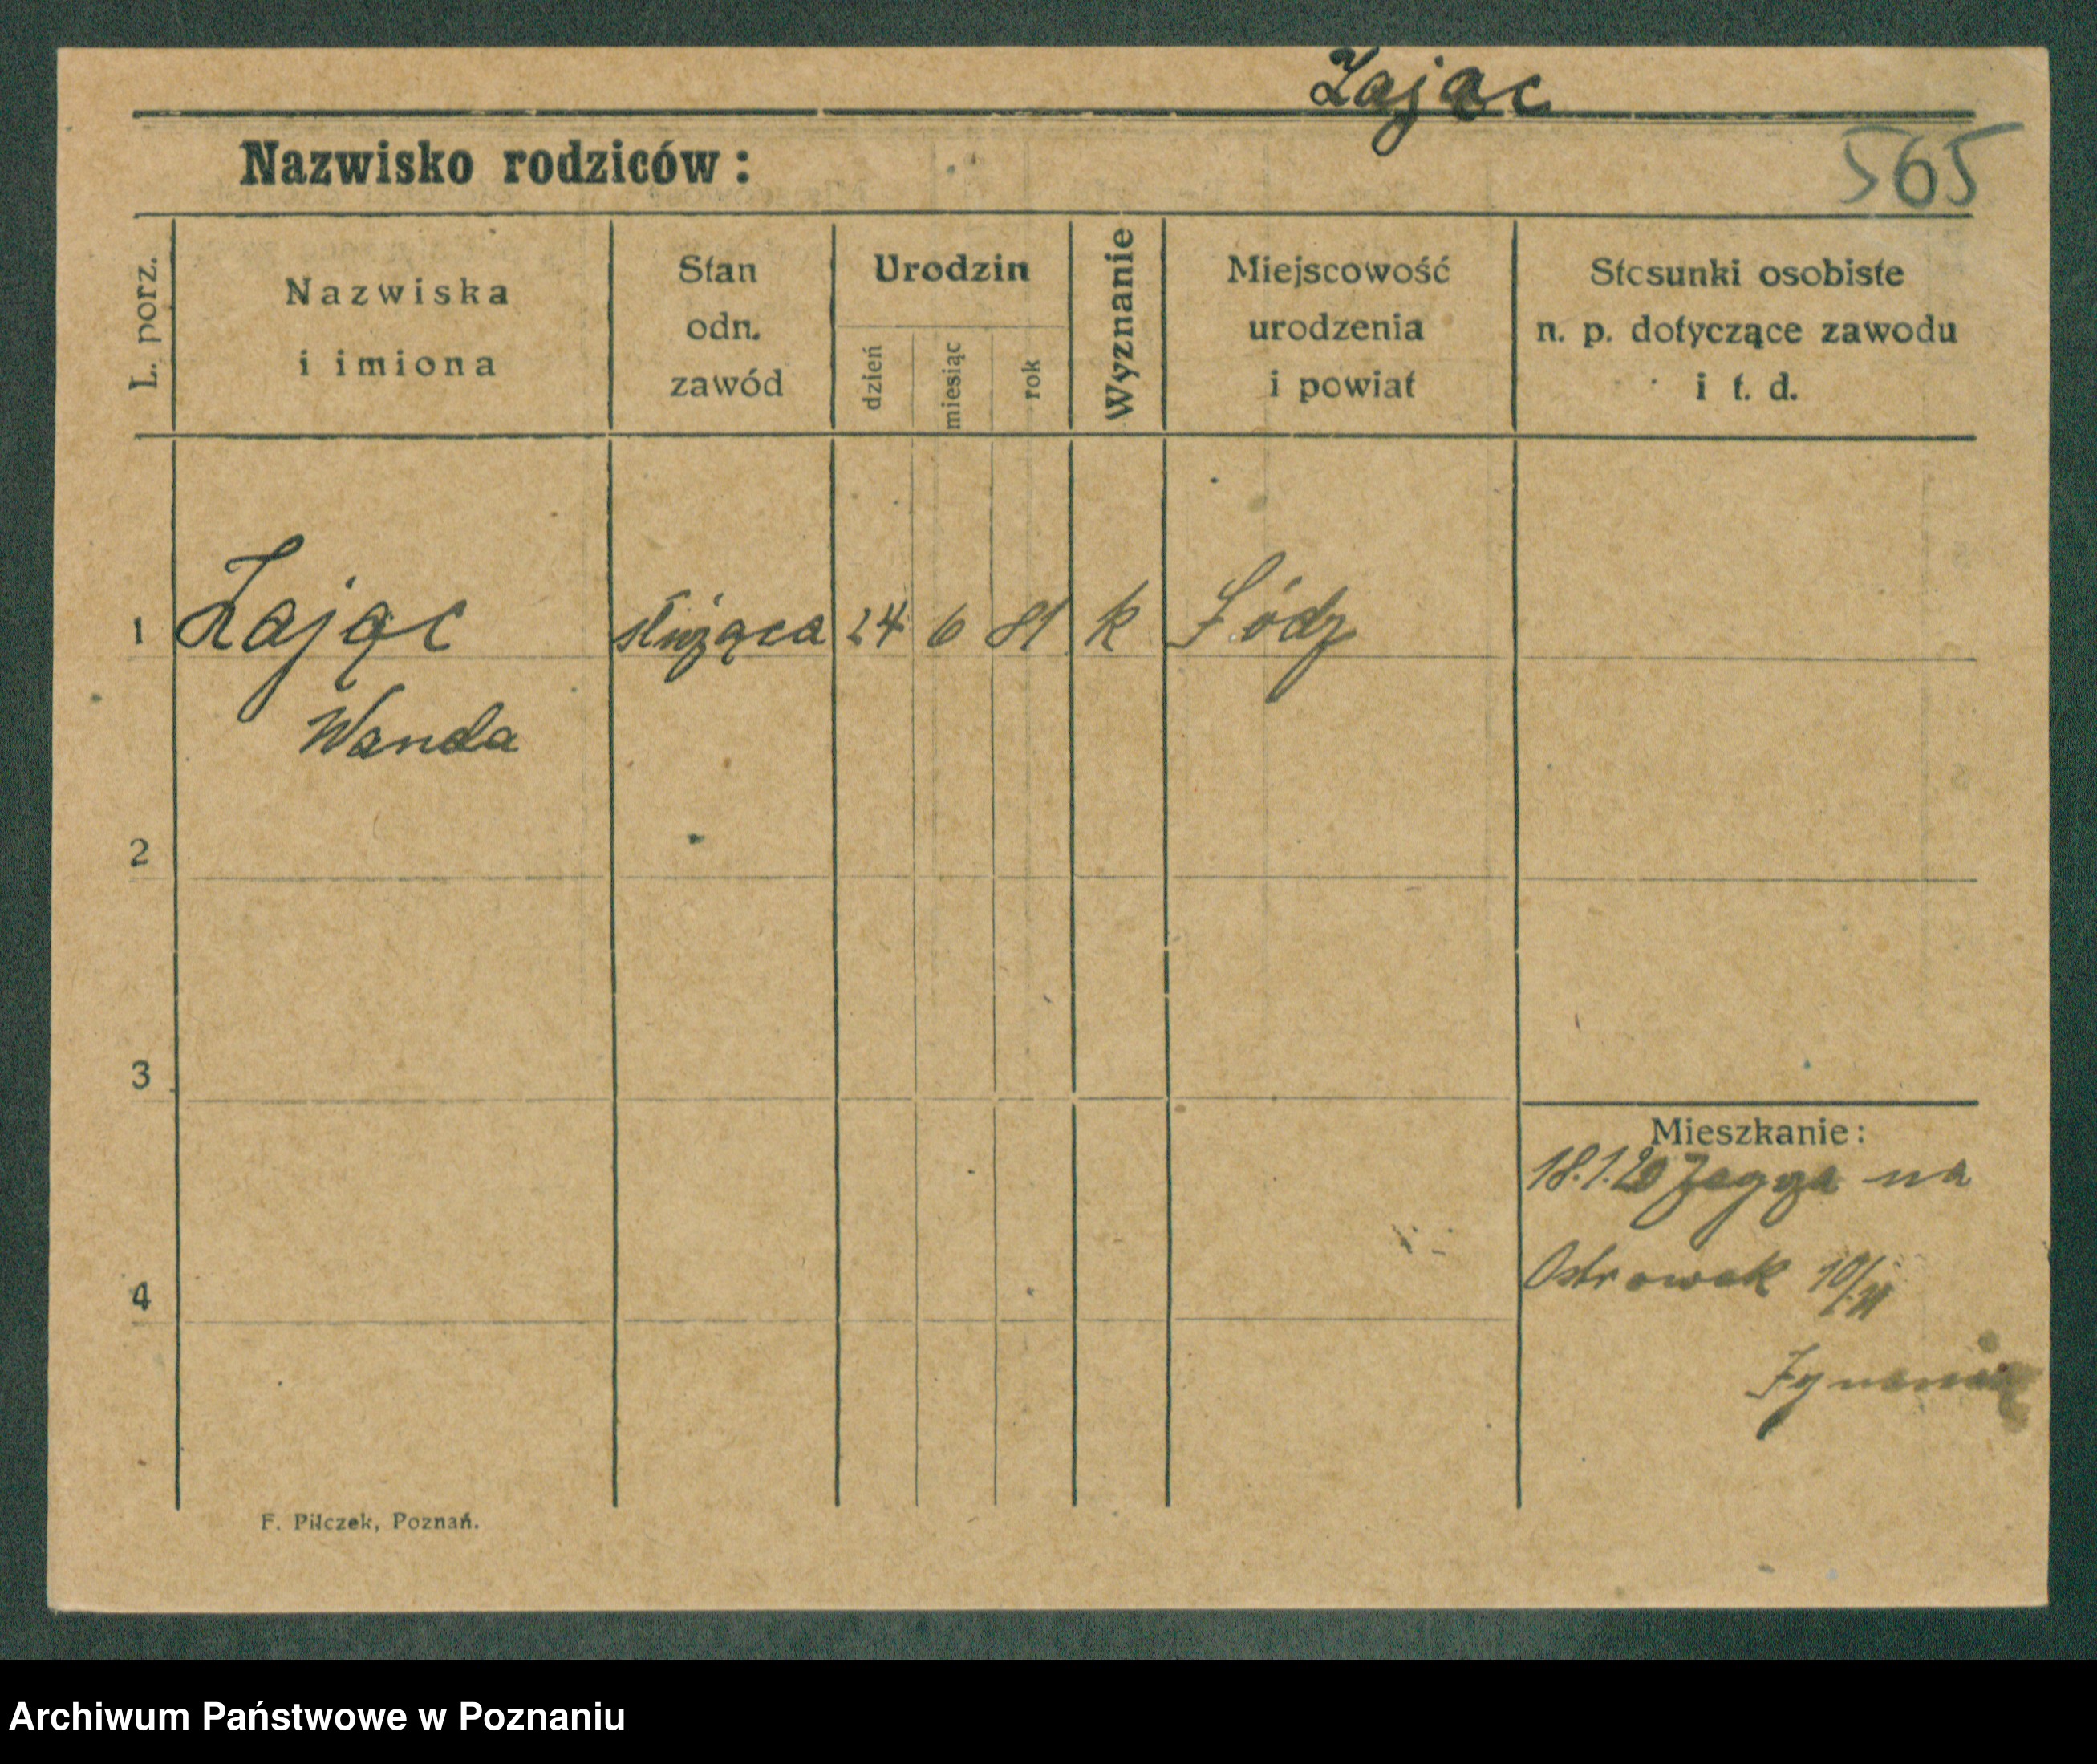 Zając
Nazwisko rodziców:
565
L. porz.
Nazwiska
i imiona
Stan
odn.
zawód
Urodzin
dzień
miesiąc
rok
Wyznanie
Miejscowość
urodzenia
i powiat
Stosunki osobiste
n. p. dotyczące zawodu
i t. d.
1 Zając służąca 24 6 81 k Łódz
Wanda
2
3
Mieszkanie:
18.1.20 na
Ostrowek 10/
4
F. Pilczek, Poznań.
Archiwum Państwowe w Poznaniu